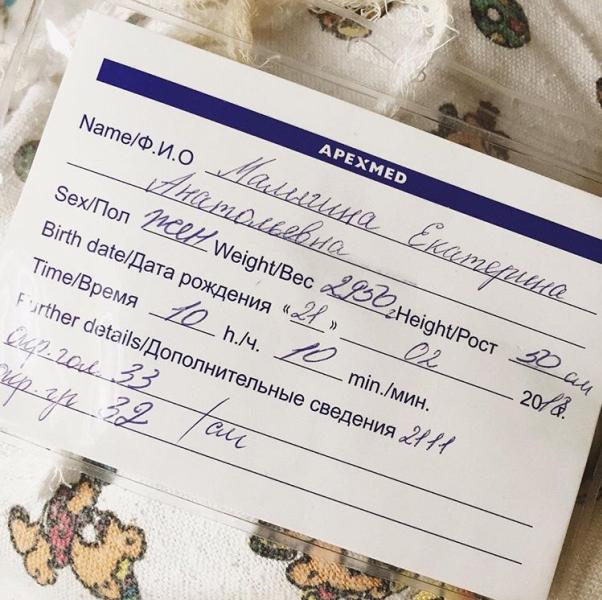 APEXMED
Name/Ф.И.О Малигина Екатерина
Анатольевна
Sex/Пол жен Weight/Вес 2930 г Height/Рост 50 см
Birth date/Дата рождения «21» 02 2018г.
Time/Время 10 h./ч. 10 min./мин.
Further details/Дополнительные сведения 2111
окр. гол. 33
окр. гр 32 /см